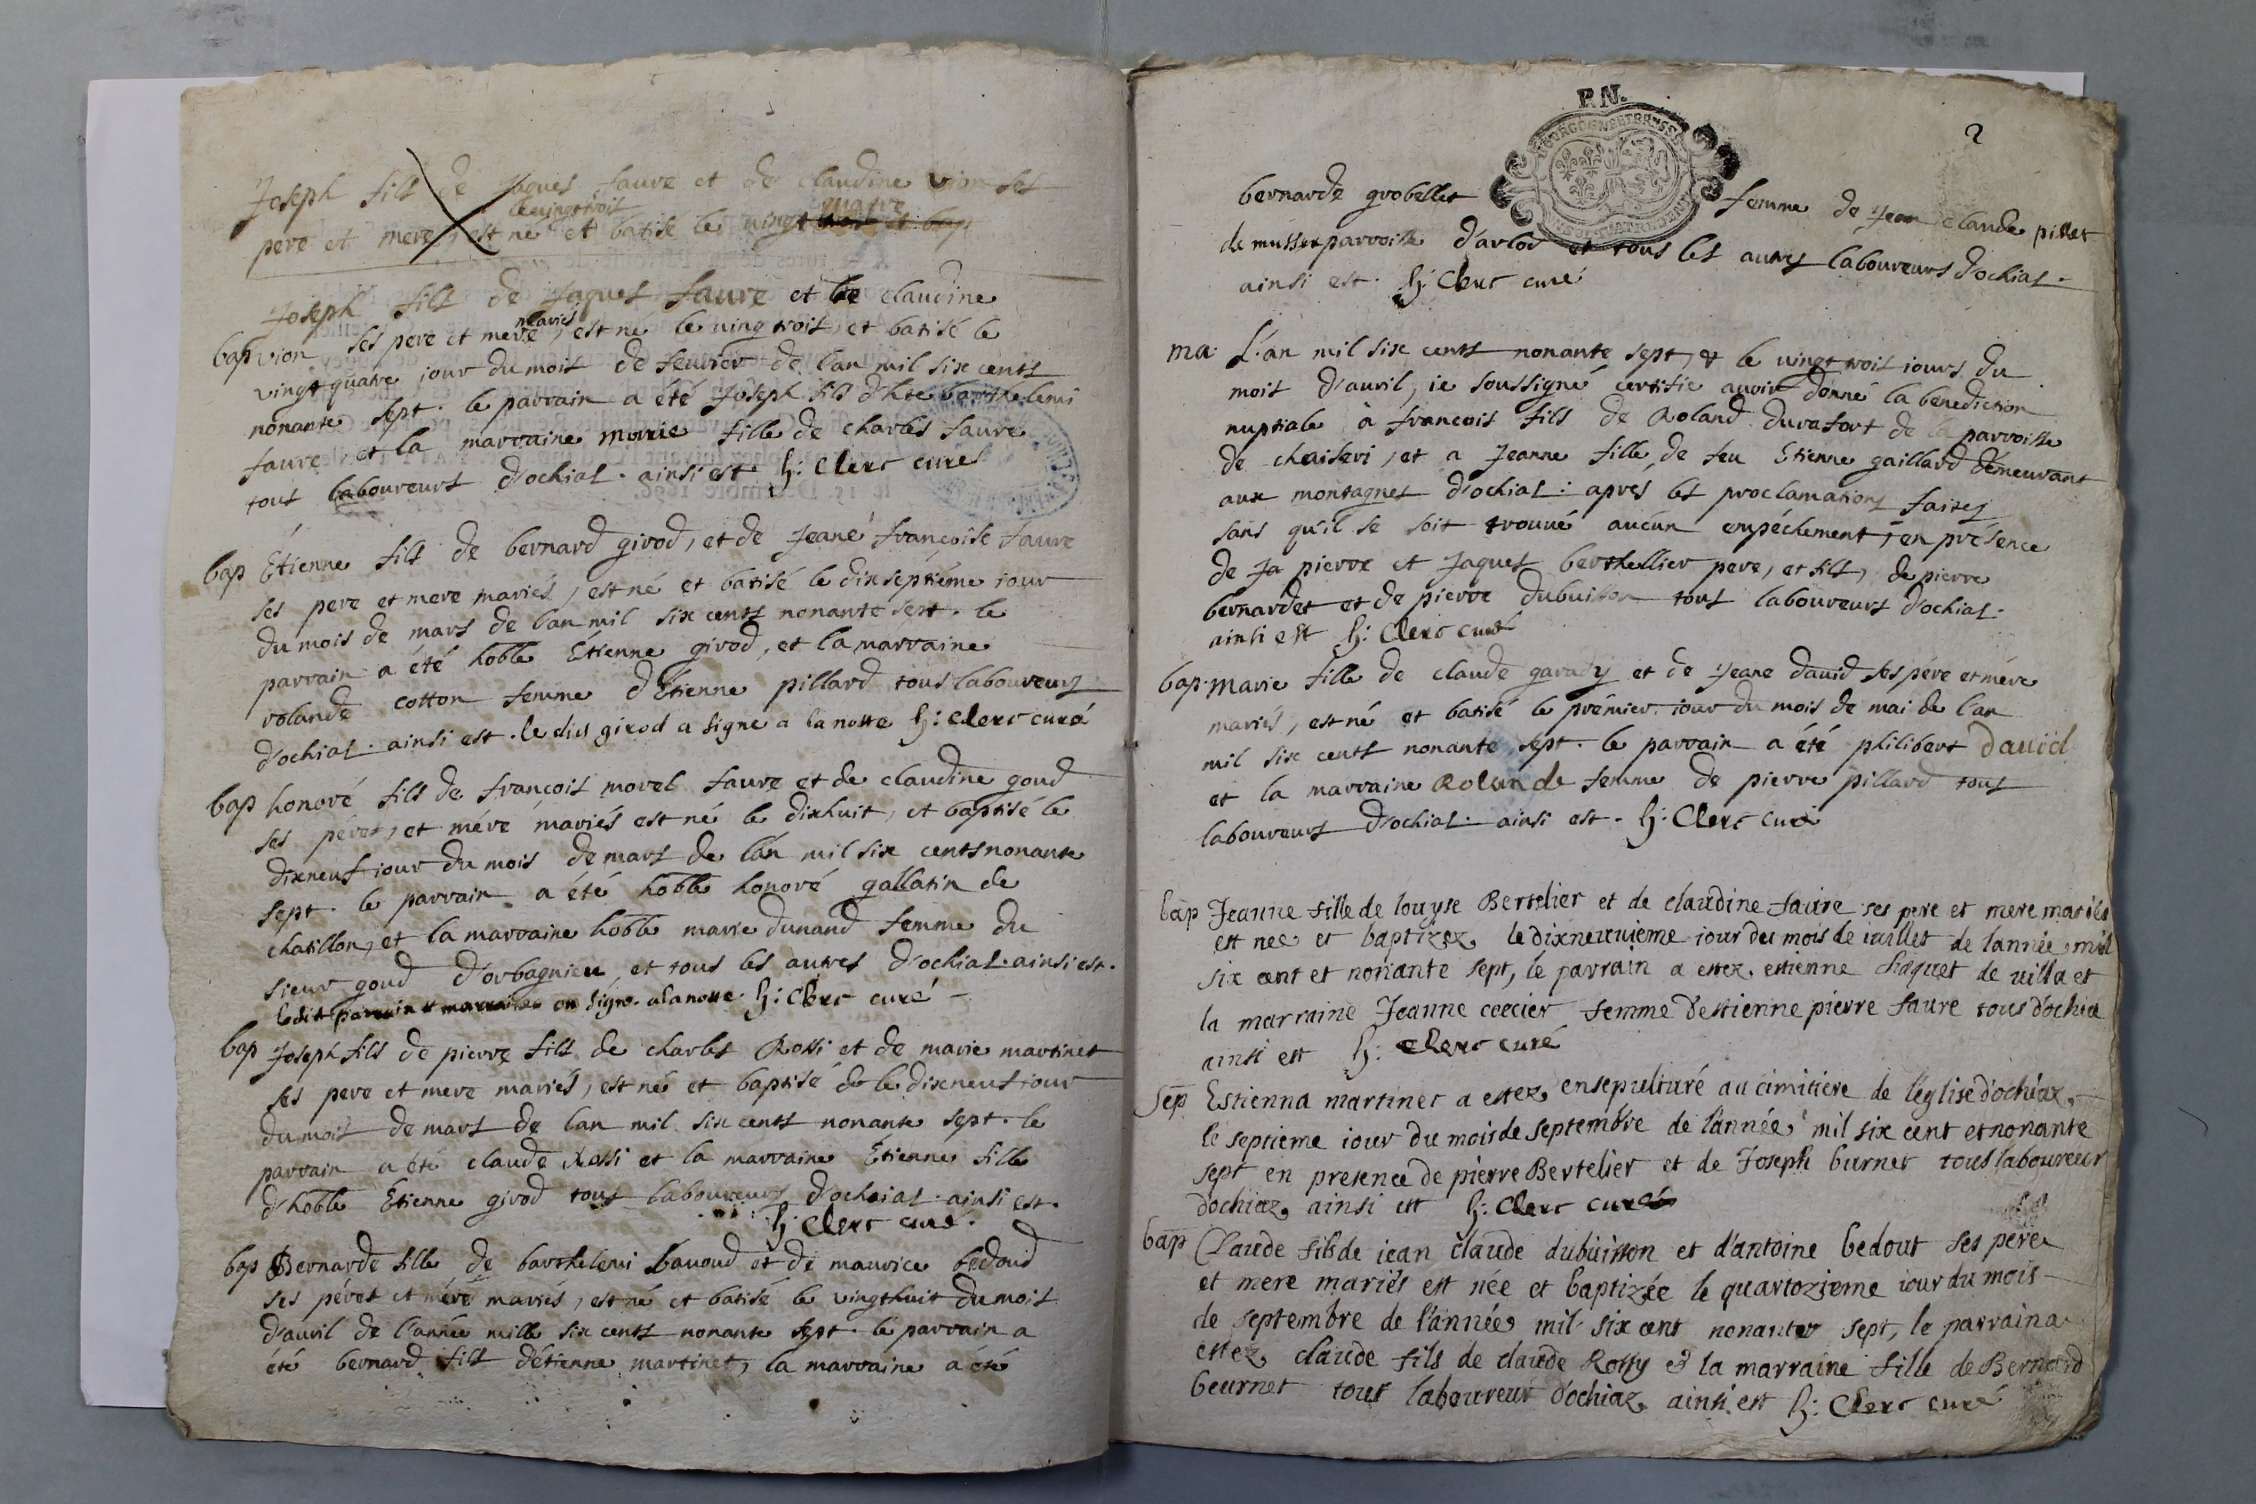 Joseph fils de Jaques faure et de claudine vion ses
le vingt trois
quatre
pere et mere, est né et batisé le vingt trois et bap
Joseph fils de Jaques faure et de claudine
mariés
bap vion ses pere et mere, est né le vingtrois, et batisé le
vingt quatre jour du mois de feurier de l'an mil six cents
nonante sept. le parrain a été Joseph fils d'hte barthelemi
faure, et la marraine marie fille de charles faure
tous laboureurs d'ochias. ainsi est h: Clerc curé
bap Étienne fils de bernard girod, et de Jeane françoise faure
ses pere et mere mariés, est né et batisé le dixseptiéme iour
du mois de mars de l'an mil six cents nonante sept. le
parrain a été hoble Étienne girod, et la marraine
rolande cotton femme d'Étienne pillard tous laboureurs
d'ochias. ainsi est. ledit girod a signe a la notte h: Clerc curé
bap honoré fils de françois morel faure et de claudine goud
ses péret, et mére mariés est né le dixhuit, et baptisé le
dixneuf iour du mois de mars de l'an mil six cents nonante
sept. le parrain a été hoble honoré gallatin de
chatillon, et la marraine hoble marie dunand femme du
sieur goud d'orbagnieu, et tous les autres d'ochias. ainsi est.
ledit parrain et marraine on signe a la notte h: Clerc curé
bap Joseph fils de pierre fils de charles Rossi et de marie martinet
ses pere et mere mariés, est né et baptisé de le dixneuf iour
du mois de mars de l'an mil six cents nonante sept. le
parrain a été claude Rossi et la marraine Étienne fille
d'hoble Etienne girod tous laboureurs d'ochias. ainsi est.
h: Clerc curé.
bap Bernarde fille de barthelemi Lauoud et de maurice bedoud
ses péret et mére mariés, est né et batisé le vingthuit du mois
d'auril de l'année mille six cents nonante sept. le parrain a
été bernard fils d'étienne martinet, la marraine a été
P.N.
2
bernarde grobellet femme de Jean claude pillet
de mussex parroisse d'arlod et tous les autres laboureurs d'ochias.
ainsi est. h: Clerc curé
ma. L'an mil six cents nonante sept, & le vingt trois iours du
mois d'auril, ie soussigné certifie auoir donné la benediction
nuptiale à françois fils de Roland durafort de la parroisse
de chaiseri, et a Jeanne fille de feu Etienne gaillard démeurant
aux montagnes d'ochias: aprés les proclamations faites
sans qu'il se soit trouué aucun empéchement, en présence
de Ja pierre et Jaques berthellier pere, et fils, de pierre
bernardet et de pierre dubuisson tous laboureurs d'ochias.
ainsi est h: Clerc curé
bap. Marie fille de claude garady et de Jeane dauid ses pére et mére
mariés, est né et batisé le prémier iour du mois de mai de l'an
mil six cents nonante sept. le parrain a été philibert dauid
et la marraine Rolande femme de pierre pillard tous
laboureurs d'ochias. ainsi est. h: Clerc curé
bap Jeanne fille de louyse Bertelier et de claudine faure ses pere et mere mariés
est nee et baptizez le dixneuuieme iour du mois de iuillet de lannée mil
six cent et nonante sept, le parrain a estez estienne Jacquet de uilla et
la marraine Jeanne coccier femme d'estienne pierre faure tous d'ochia
ainsi est h: Clerc curé
sep Estienna martinet a estez ensepulturé au cimitiere de l'église d'ochiaz,
le septieme iour du mois de septembre de l'année mil six cent et nonante
sept en presence de pierre Bertelier et de Joseph burnet tous laboureur
dochiaz ainsi est h: Clerc curé
bap Claude fils de iean claude dubuisson et d'antoine bedout ses pere
et mere mariés est née et baptizée le quartozieme iour du mois
de septembre de l'année mil six cent nonante sept, le parrain a
estez claude fils de claude Rossy & la marraine fille de Bernard
beurnet tous laboureur d'ochiaz ainsi est h: Clerc curé